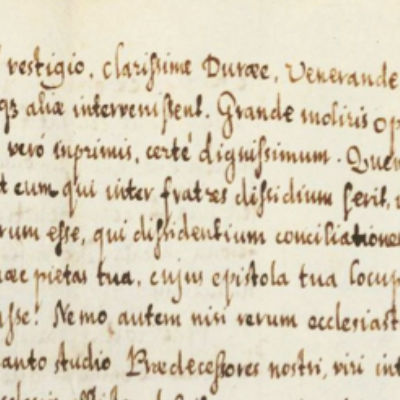 vestigio, clarissime Duraee, Venerande
qz aliae intervenissent. Grande moliris op
vero inprimis, certé dignissimum. Quem
t eum qui inter fratres dissidium serit,
rum esse, qui dissidentium conciliatione
aee pietas tua, cujus epistola tua locup
isse! Nemo autem nisi rerum ecclesiast
anto studio Praedecessores nostri, viri int